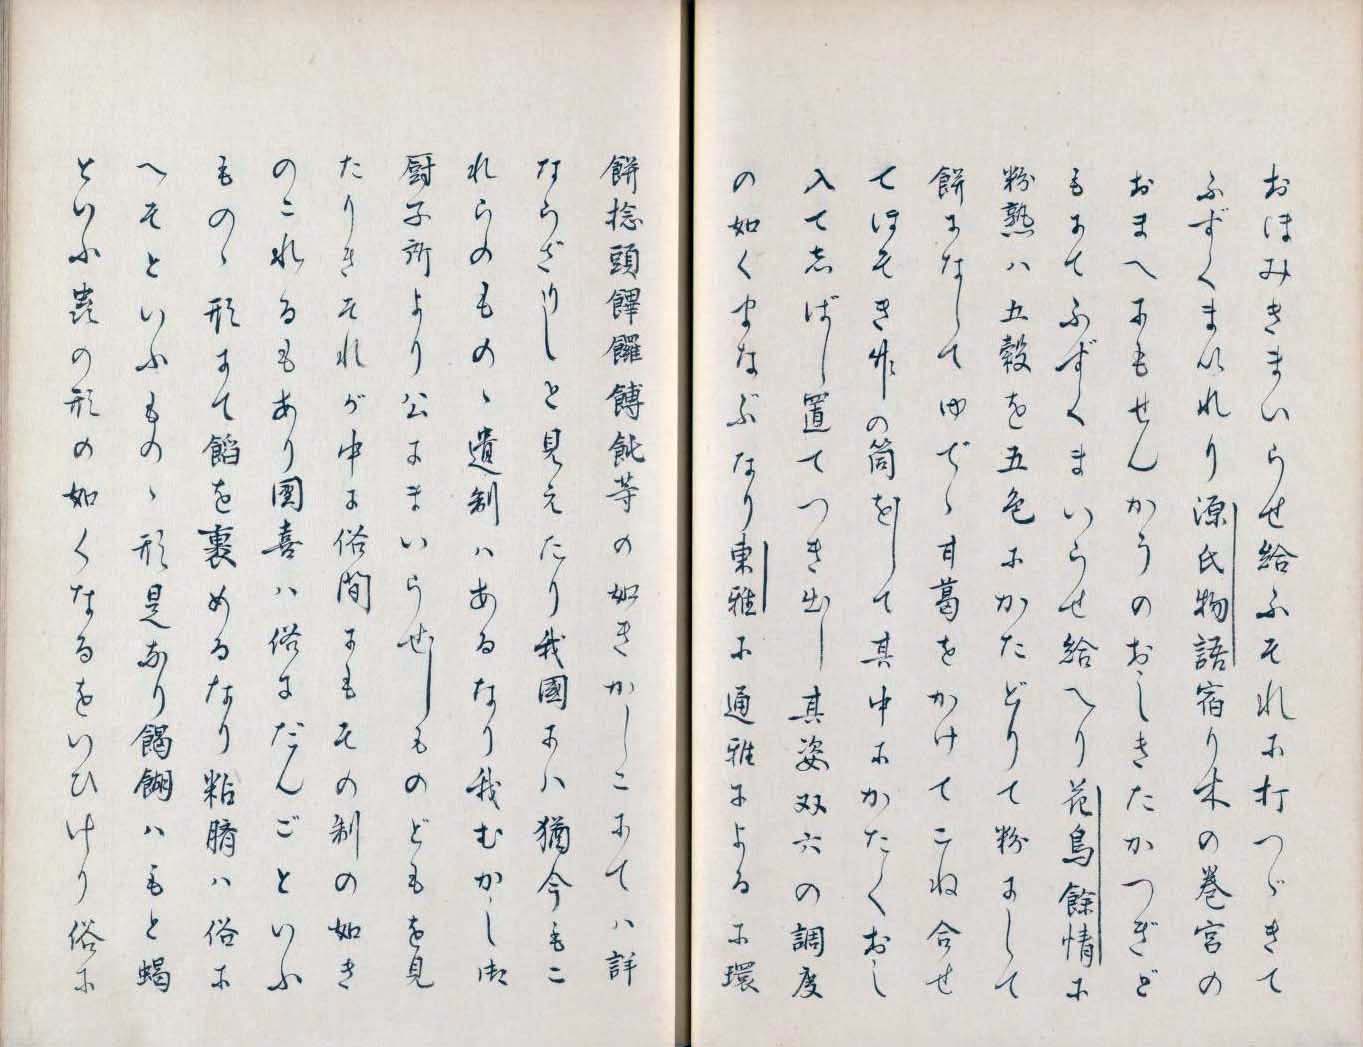 おほみきまいらせ給ふそれに打つゞきて
ふずくまいれり源氏物語宿り木の巻宮の
おまへにもせんかうのおしきたかつぎど
もにてふずくまいらせ給へり花鳥餘情に
粉熟ハ五穀を五色にかたどりて粉にして
餅になしてゆでゝ甘葛をかけてこね合せ
てほそき竹の筒をして其中にかたくおし
入てしばし置てつき出し其姿双六の調度
の如くまなぶなり東雅に通雅によるに環
餅捻頭饆饠餺飥等の如きかしこにてハ詳
ならざりしと見えたり我國にハ猶今もこ
れらのものゝ遺制ハあるなり我むかし御
厨子所より公にまいらせしものどもを見
たりきそれが中に俗間にもその制の如き
のこれるもあり團喜ハ俗にだんごといふ
ものゝ形にて餡を裏めるなり粘臍ハ俗に
へそといふものゝ形是なり餲餬ハもと蝎
といふ蟲の形の如くなるをいひけり俗に